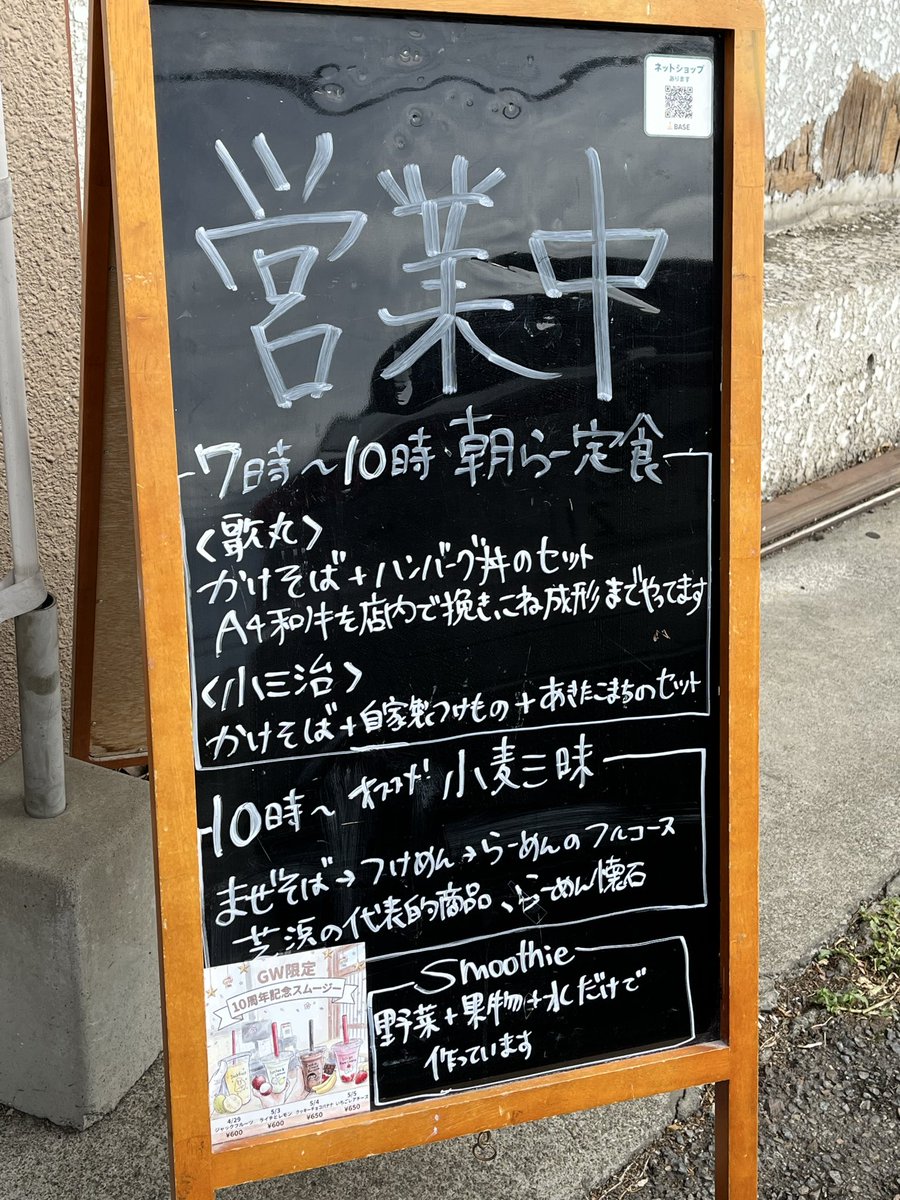 ネットショップ
あります
BASE
営業中
7時〜10時 朝らー定食
〈歌丸〉
かけそば+ハンバーグ丼のセット
A4和牛を店内で挽き、こね成形までやってます
〈小三治〉
かけそば+自家製つけもの+あきたこまちのセット
10時〜 オススメ! 小麦三昧
まぜそば→つけめん→らーめんのフルコース
芝浜の代表的商品、らーめん懐石
Smoothie
野菜+果物+氷だけで
作っています
GW限定
10周年記念スムージー
4/29
ジャックフルーツ
¥600
5/3
ライチとレモン
¥600
5/4
クッキーチョコバナナ
¥650
5/5
いちごレアチーズ
¥650